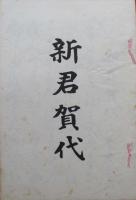 新君賀代